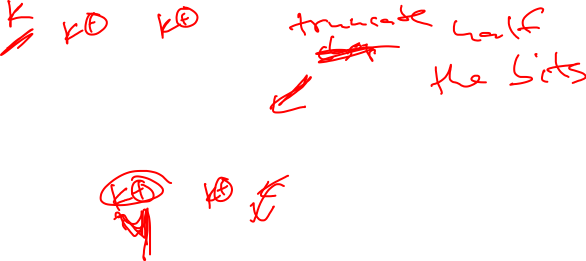 K
K⊕ K⊕
truncate half
the bits
K⊕ K⊕